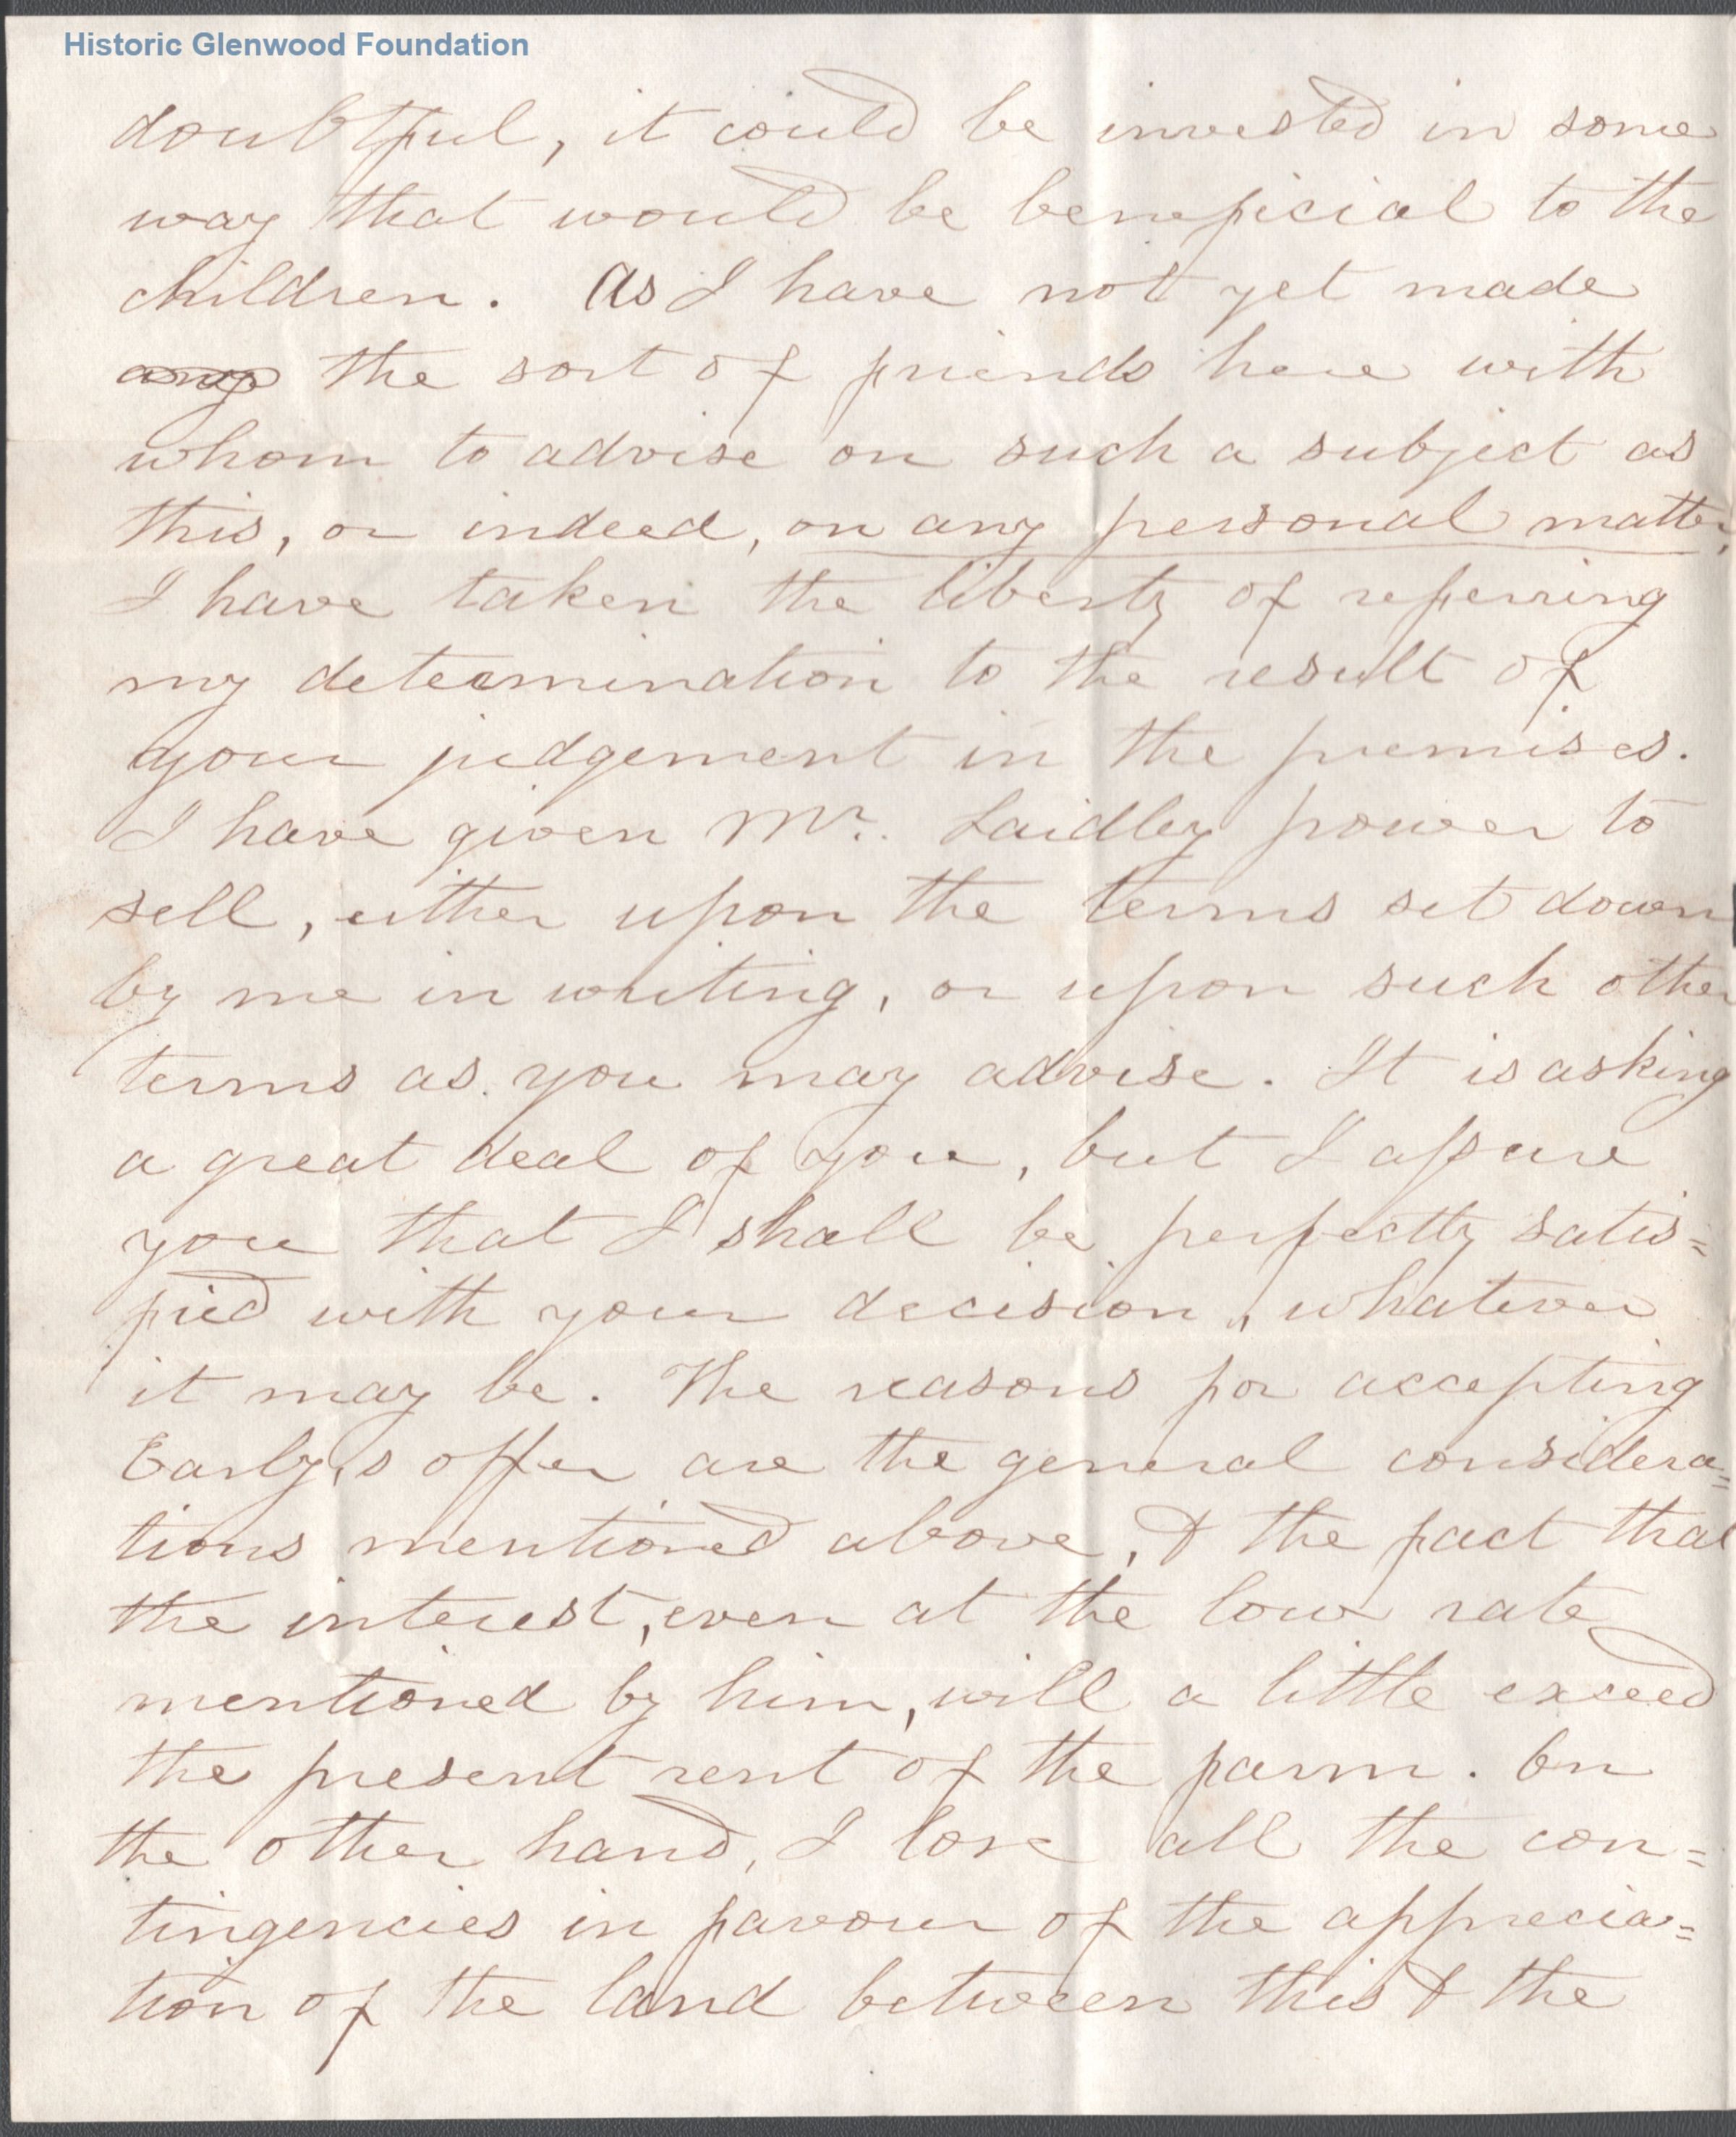 Historic Glenwood Foundation
doubtful, it could be invested in some
way that would be beneficial to the
children. As I have not yet made
any the sort of friends here with
whom to advise on such a subject as
this, or indeed, on any personal matter,
I have taken the liberty of referring
my determination to the result of
your judgement in the premises.
I have given Mr. Laidley power to
sell, either upon the terms set down
by me in writing, or upon such other
terms as you may advise. It is asking
a great deal of you, but I assure
you that I shall be perfectly satis=
fied with your decision, whatever
it may be. The reasons for accepting
Early,s offer are the general considera=
tions mentioned above, & the fact that
the interest, even at the low rate
mentioned by him, will a little exceed
the present rent of the farm. On
the other hand, I lose all the con=
tingencies in favour of the apprecia=
tion of the land between this & the